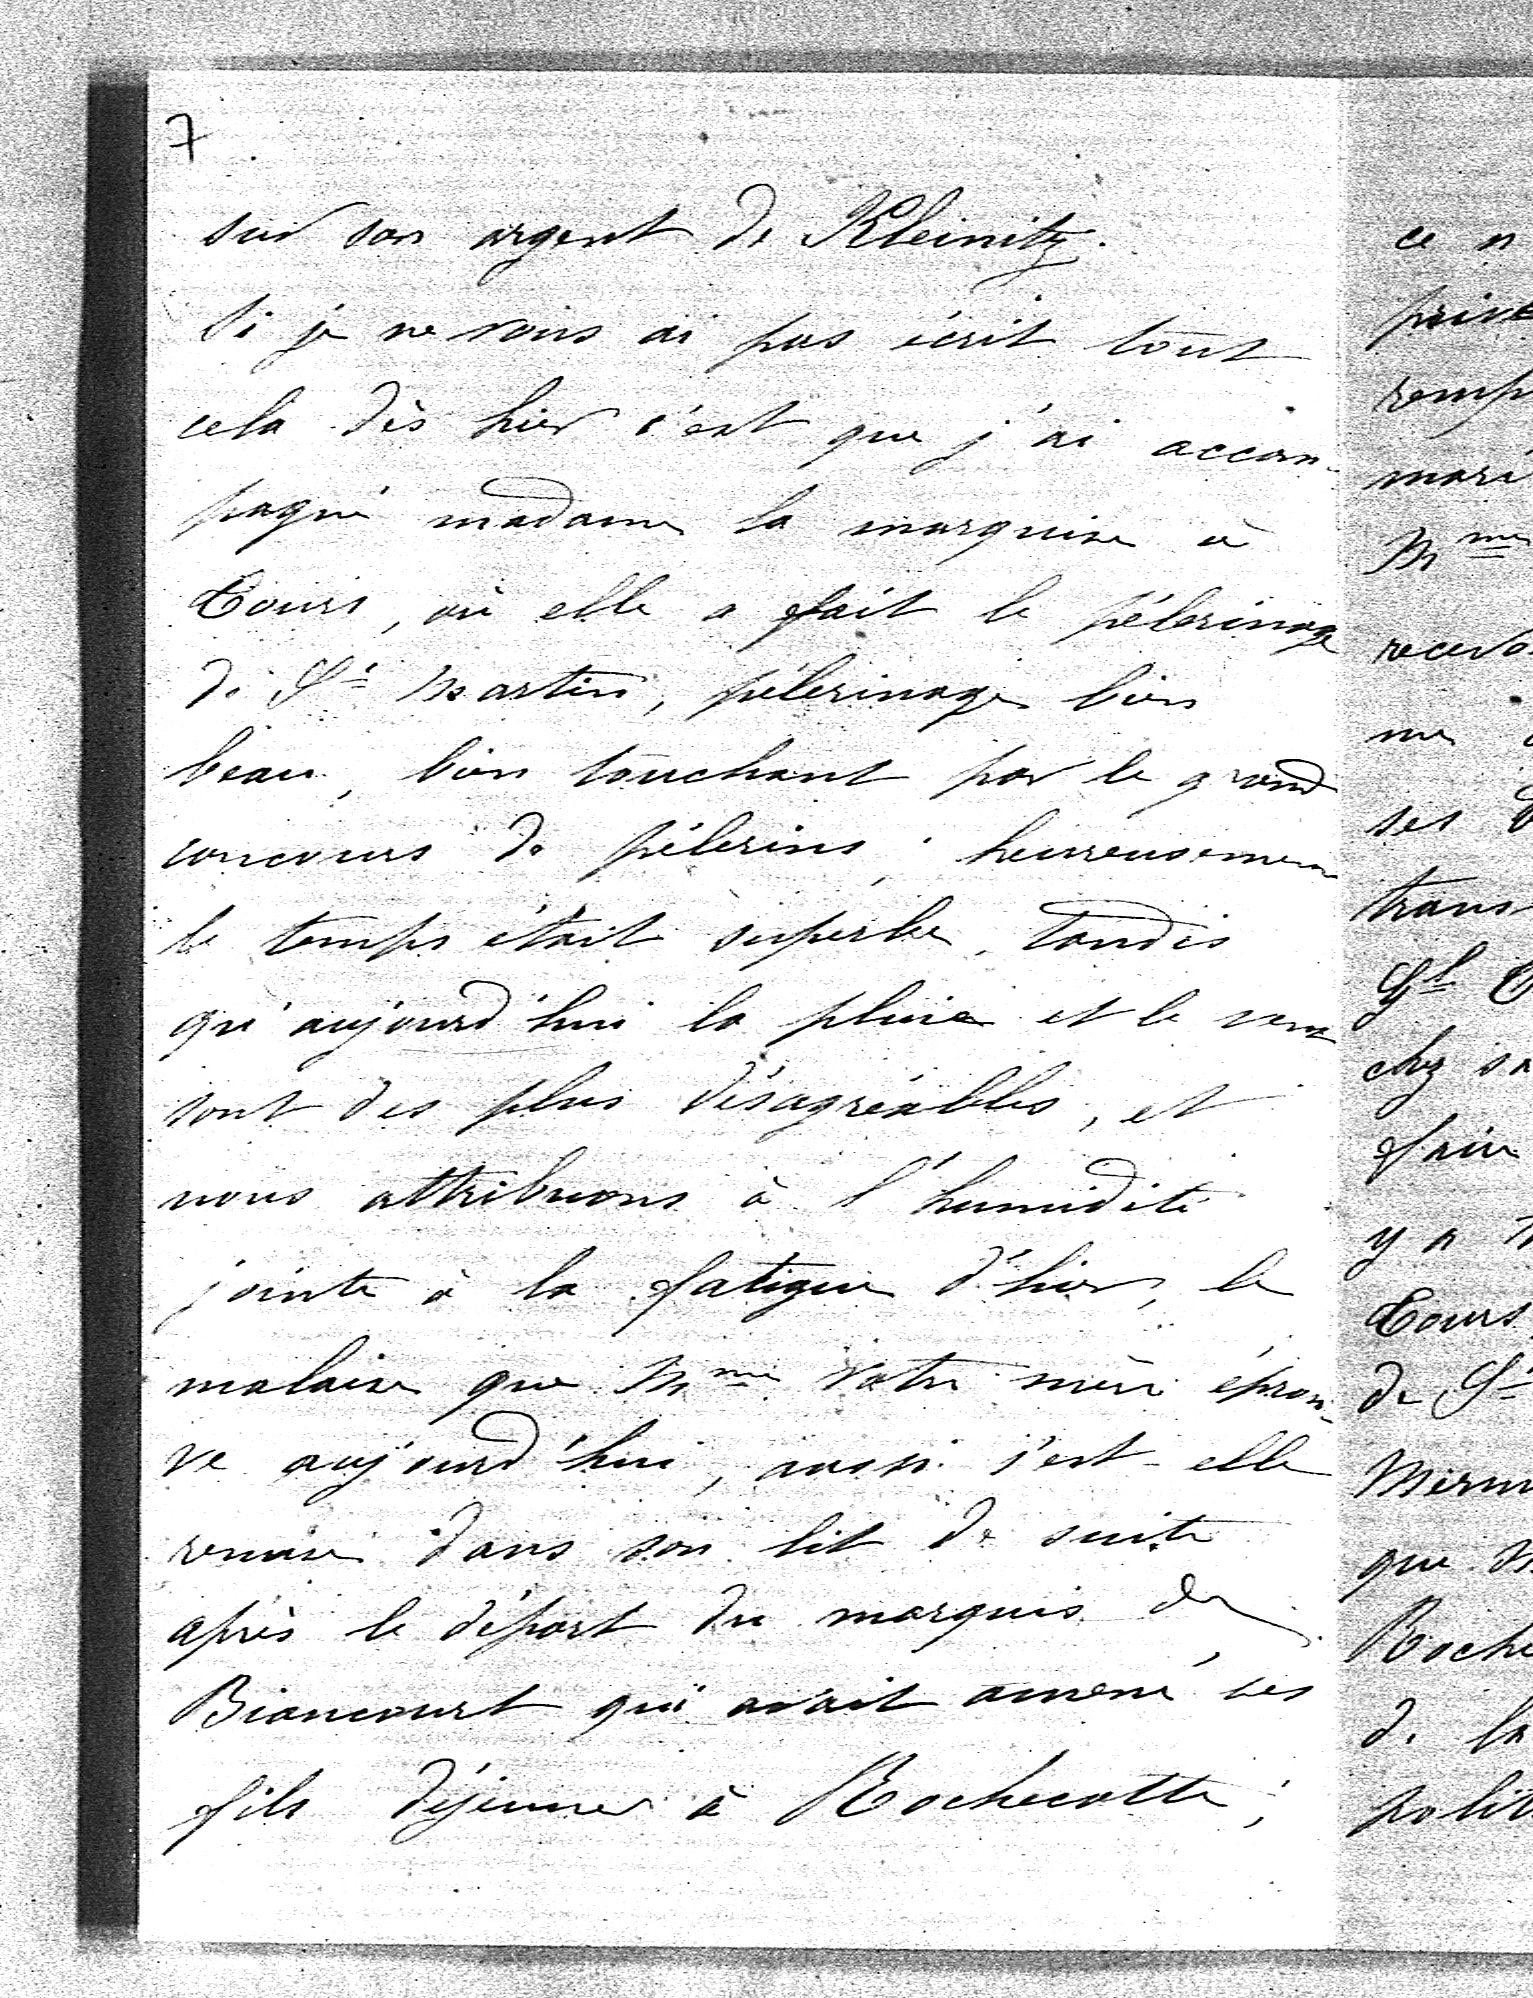 7
sur son argent de Kleinitz.
Si je ne vous ai pas écrit tout
cela dès hier c'est que j'ai accom-
pagné madame la marquise à
Tours, où elle a fait le pélerinage
de St Martin, pélerinage bien
beau, bien touchant par le grand
concours de pélerins ; heureusement
le temps était superbe, tandis
qu'aujourd'hui la pluie et le vent
sont des plus désagréables, et
nous attribuons à l'humidité
jointe à la fatigue d'hier, le
malaise que Mme votre mère éprou-
ve aujourd'hui, aussi s'est-elle
remise dans son lit de suite
après le départ du marquis de
Biancourt qui avait amené ses
fils déjeuner à Rochecotte ;
ce n
prive
remp
mari
Mme
recevo
me
ses
trans
Gl
chez sa
faire
y a
Tours
de St
Merm
que
Roche
de la
polit